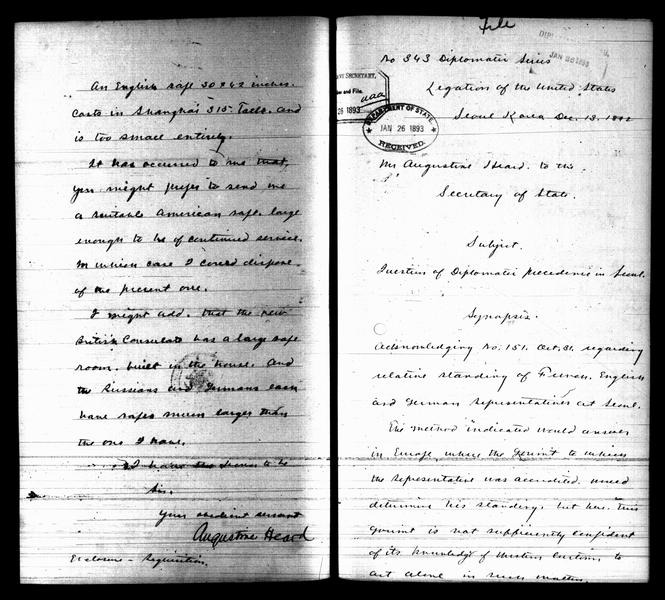 An English safe 30 x 42 inches.
Costs in Shanghai 315 Taels. and
is too small entirely.
It has occurred to me that,
you might prefer to send me
a suitable American safe. large
enough to be of continued service.
in which case I could dispose
of the present one.
I might add. that the new
British Consulate has a large safe
room. built in the house. and
the Russians and Germans each
have safes much larger than
the one I have.
I have the honor to be
Sir.
Your obedient servant
Augustine Heard
Enclosure - Requisition.
File
JAN 26 1893
No 343 Diplomatic Series
SECRETARY,
and File.
26 1893
Legation of the United States
DEPARTMENT OF STATE,
JAN 26 1893
RECEIVED.
Seoul Korea Dec. 13. 1892
Mr Augustine Heard. to the
Secretary of State.
Subject.
Question of Diplomatic precedence in Seoul.
Synopsis.
Acknowledging No. 151. Oct. 31. regarding
relative standing of French, English
and German Representatives at Seoul.
The method indicated would answer
in Europe where the Govmt to which
the Representative was accredited. would
determine his standing. but here this
Govmt is not sufficiently confident
of its knowledge of Western Customs to
act alone in such matters.